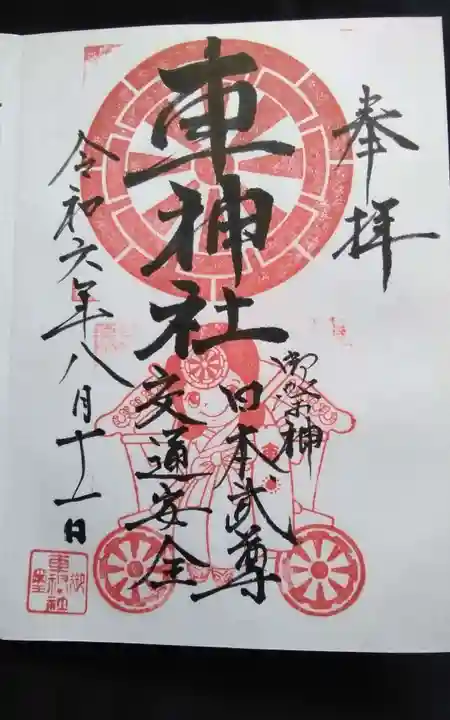 奉拝
車神社
御祭神
日本武尊
交通安全
令和六年八月十一日
車
車神社
御璽